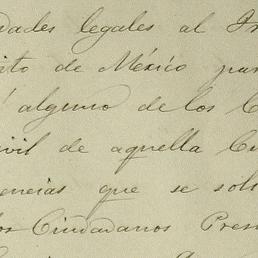 dades legales al
ito de México par
alguno de los C
ivil de aquella Ci
encias que se soli
los Ciudadanos Pres